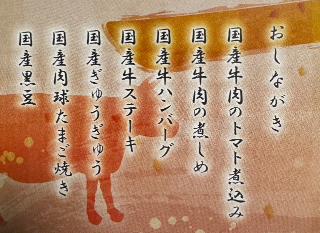 おしながき
国産牛肉のトマト煮込み
国産牛肉の煮しめ
国産牛ハンバーグ
国産牛ステーキ
国産ぎゅうぎゅう
国産肉球たまご焼き
国産黒豆